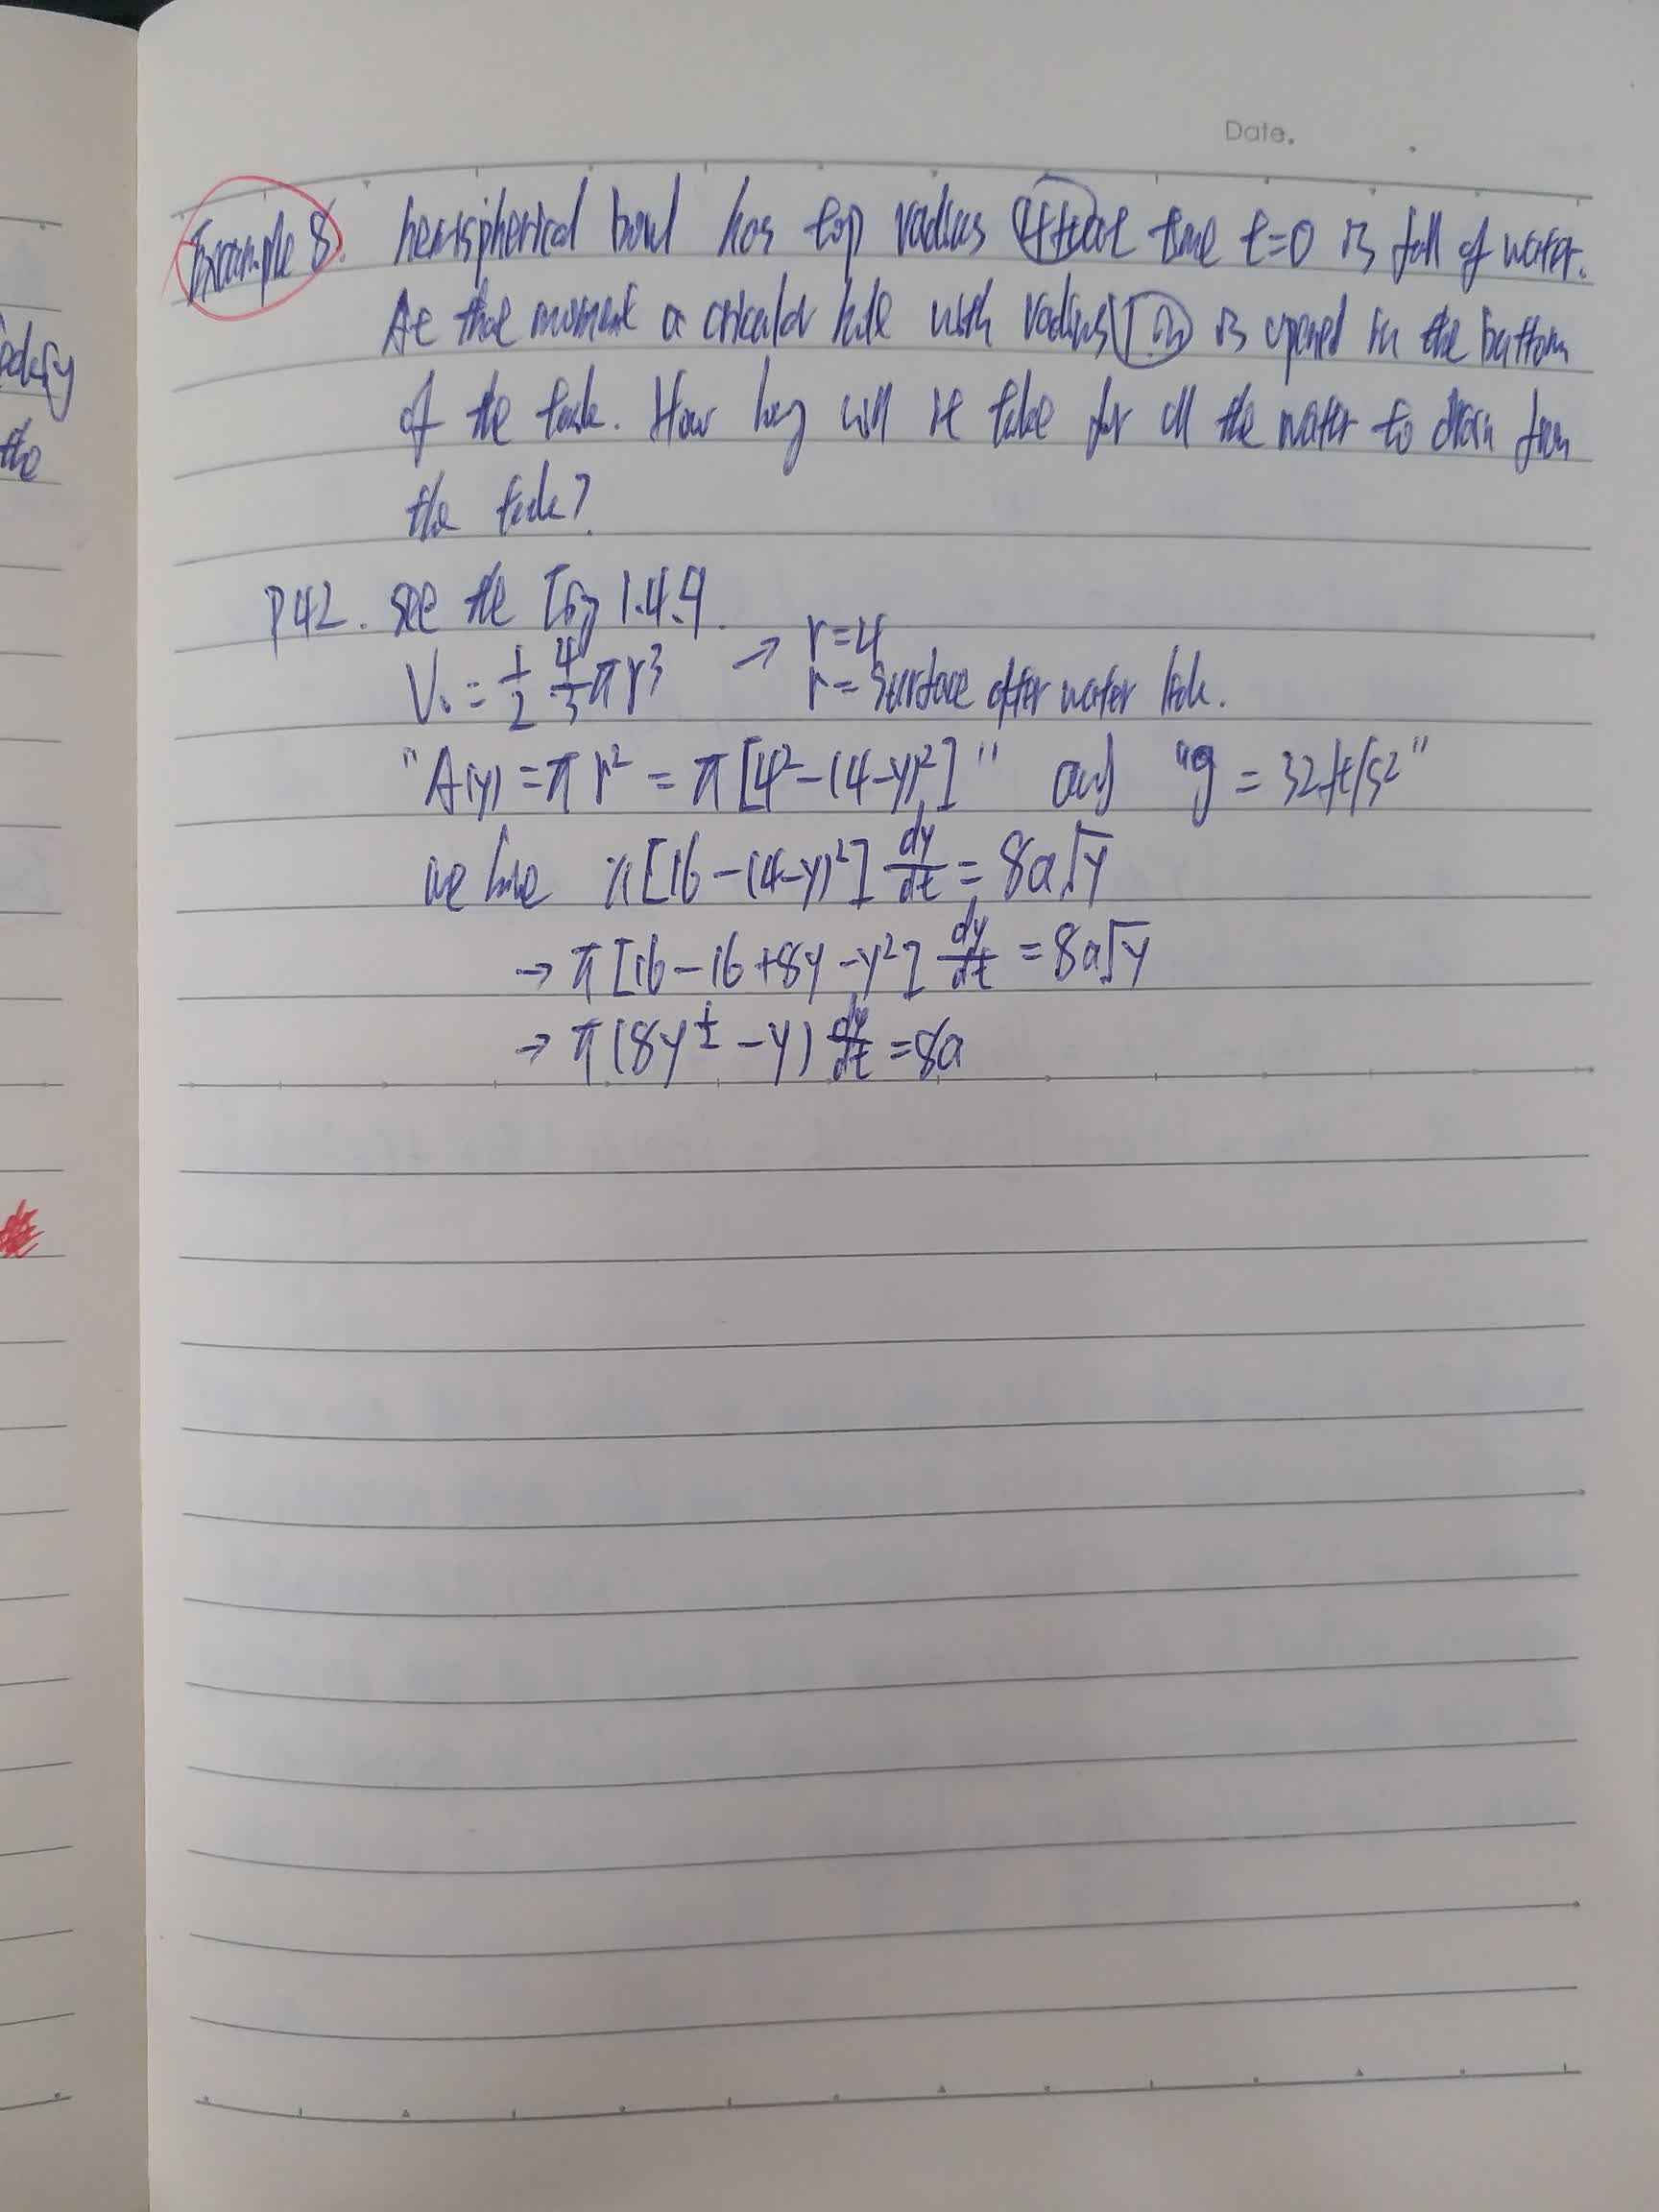 Date.
Example 8. hemispherical bowl has top radius 4ft at time t=0 is full of water.
At that moment a hole with radius 1 in is opened in the bottom
of the tank. How long will it take for all the water to drain from
the tank?
P42. see the Fig 1.4.9.
V₀ = 1/2 4/3 πr³ → r=4
r= surface after water
"A(y) = πr² = π[4²-(4-y)²]" and "g = 32ft/s²"
we have π[16-(4-y)²] dy/dt = 8a√y
→ π[16-16+8y-y²] dy/dt = 8a√y
→ π(8y^½ -y) dy/dt =8a
the